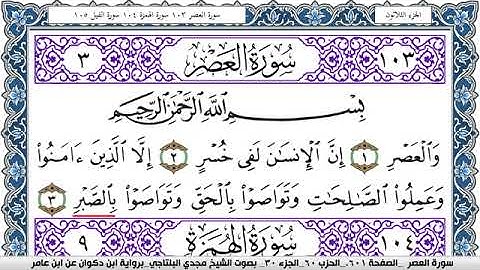 الجزء الثلاثون
سورة العصر ١٠٣ سورة الهمزة ١٠٤ سورة الفيل ١٠٥
١٠٣ سُورَةُ العَصْرِ ٣
بِسْمِ اللَّهِ الرَّحْمَٰنِ الرَّحِيمِ
وَالْعَصْرِ ١ إِنَّ الْإِنسَٰنَ لَفِى خُسْرٍ ٢ إِلَّا الَّذِينَ ءَامَنُوا
وَعَمِلُوا الصَّٰلِحَٰتِ وَتَوَاصَوْا بِالْحَقِّ وَتَوَاصَوْا بِالصَّبْرِ ٣
١٠٤ سُورَةُ الهُمَزَةِ ٩
سورة العصر _ الصفحة ٦٠١ _ الحزب ٦٠ _ الجزء ٣٠ _ بصوت الشيخ مجدي البلتاجي _ برواية ابن ذكوان عن ابن عامر